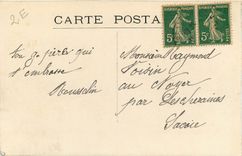 2E
CARTE POSTA
ton p
qui
t'embrasse
Rousselin
Monsieur Raymond
Voisin
au Noyer
par Lescheraines
Savoie
5
5